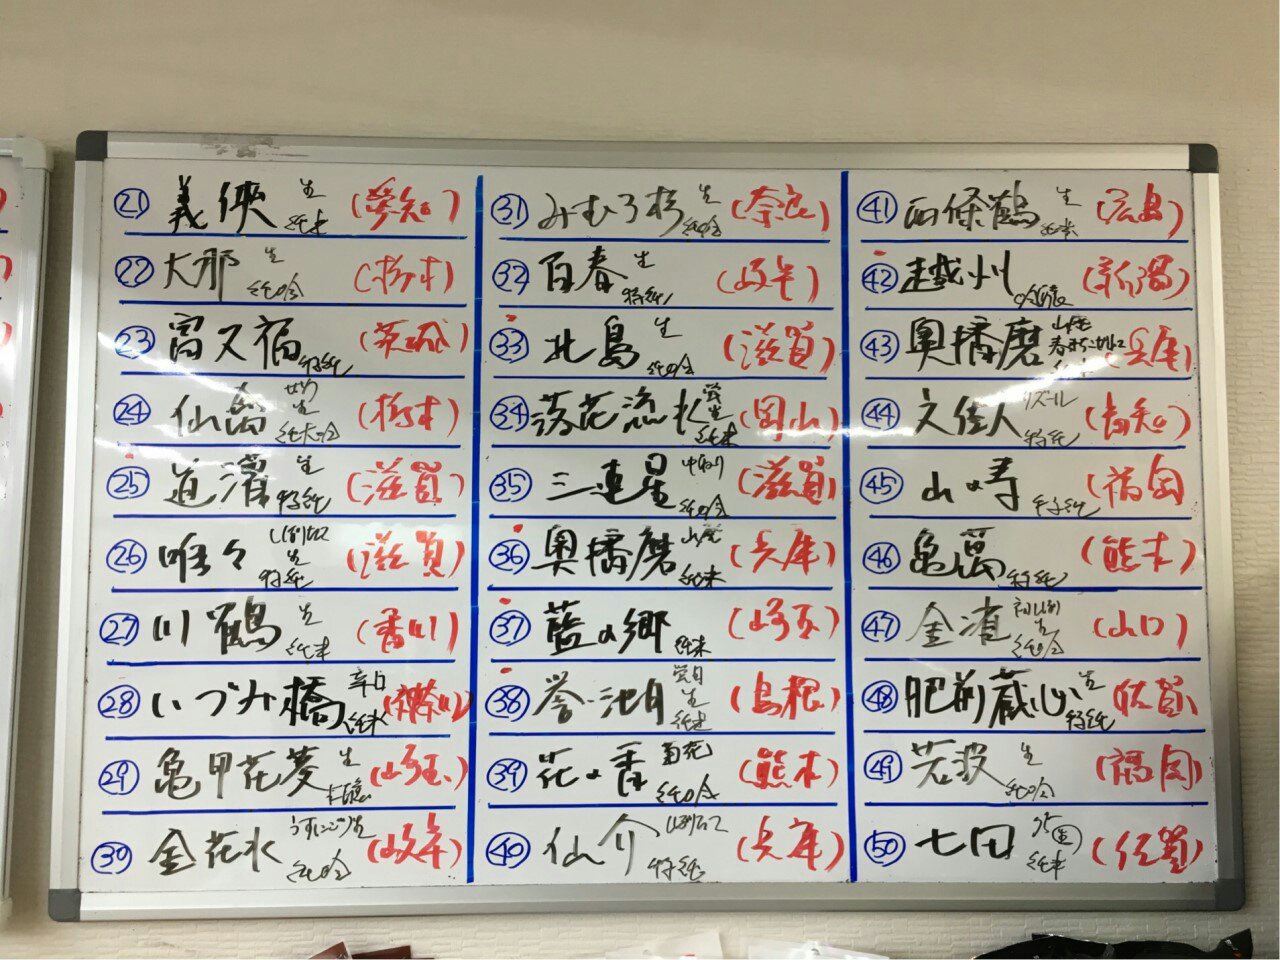 ㉑ 義侠 生 純米 (愛知)
㉒ 大那 生 純吟 (栃木)
㉓ 富久福 特純 (茨城)
㉔ 仙禽 生 (栃木)
㉕ 道灌 生 特純 (滋賀)
㉖ 唯々 しぼりたて 生 特純 (滋賀)
㉗ 川鶴 生 純米 (香川)
㉘ いづみ橋 辛口 純米 (神奈川)
㉙ 亀甲花菱 生 (埼玉)
㉚ 金花水 うすにごり生 純吟 (岐阜)
㉛ みむろ杉 生 純吟 (奈良)
㉜ 百春 生 特純 (岐阜)
㉝ 北島 生 純吟 (滋賀)
㉞ 落花流水 生 純米 (岡山)
㉟ 三連星 純吟 (滋賀)
㊱ 奥播磨 山廃 純米 (兵庫)
㊲ 藍の郷 純米 (埼玉)
㊳ 誉池月 生 純米 (島根)
㊴ 花の香 菊花 純吟 (熊本)
㊵ 仙介 しぼりたて 特純 (兵庫)
㊶ 西條鶴 生 純米 (広島)
㊷ 越州 (新潟)
㊸ 奥播磨 山廃 (兵庫)
㊹ 文佳人 リズール 特純 (高知)
㊺ 山の寿 特純 (福岡)
㊻ 亀萬 特純 (熊本)
㊼ 初しぼり 生 純吟 (山口)
㊽ 肥前蔵心 生 特純 (佐賀)
㊾ 若波 生 純吟 (福岡)
㊿ 七田 生 純米 (佐賀)